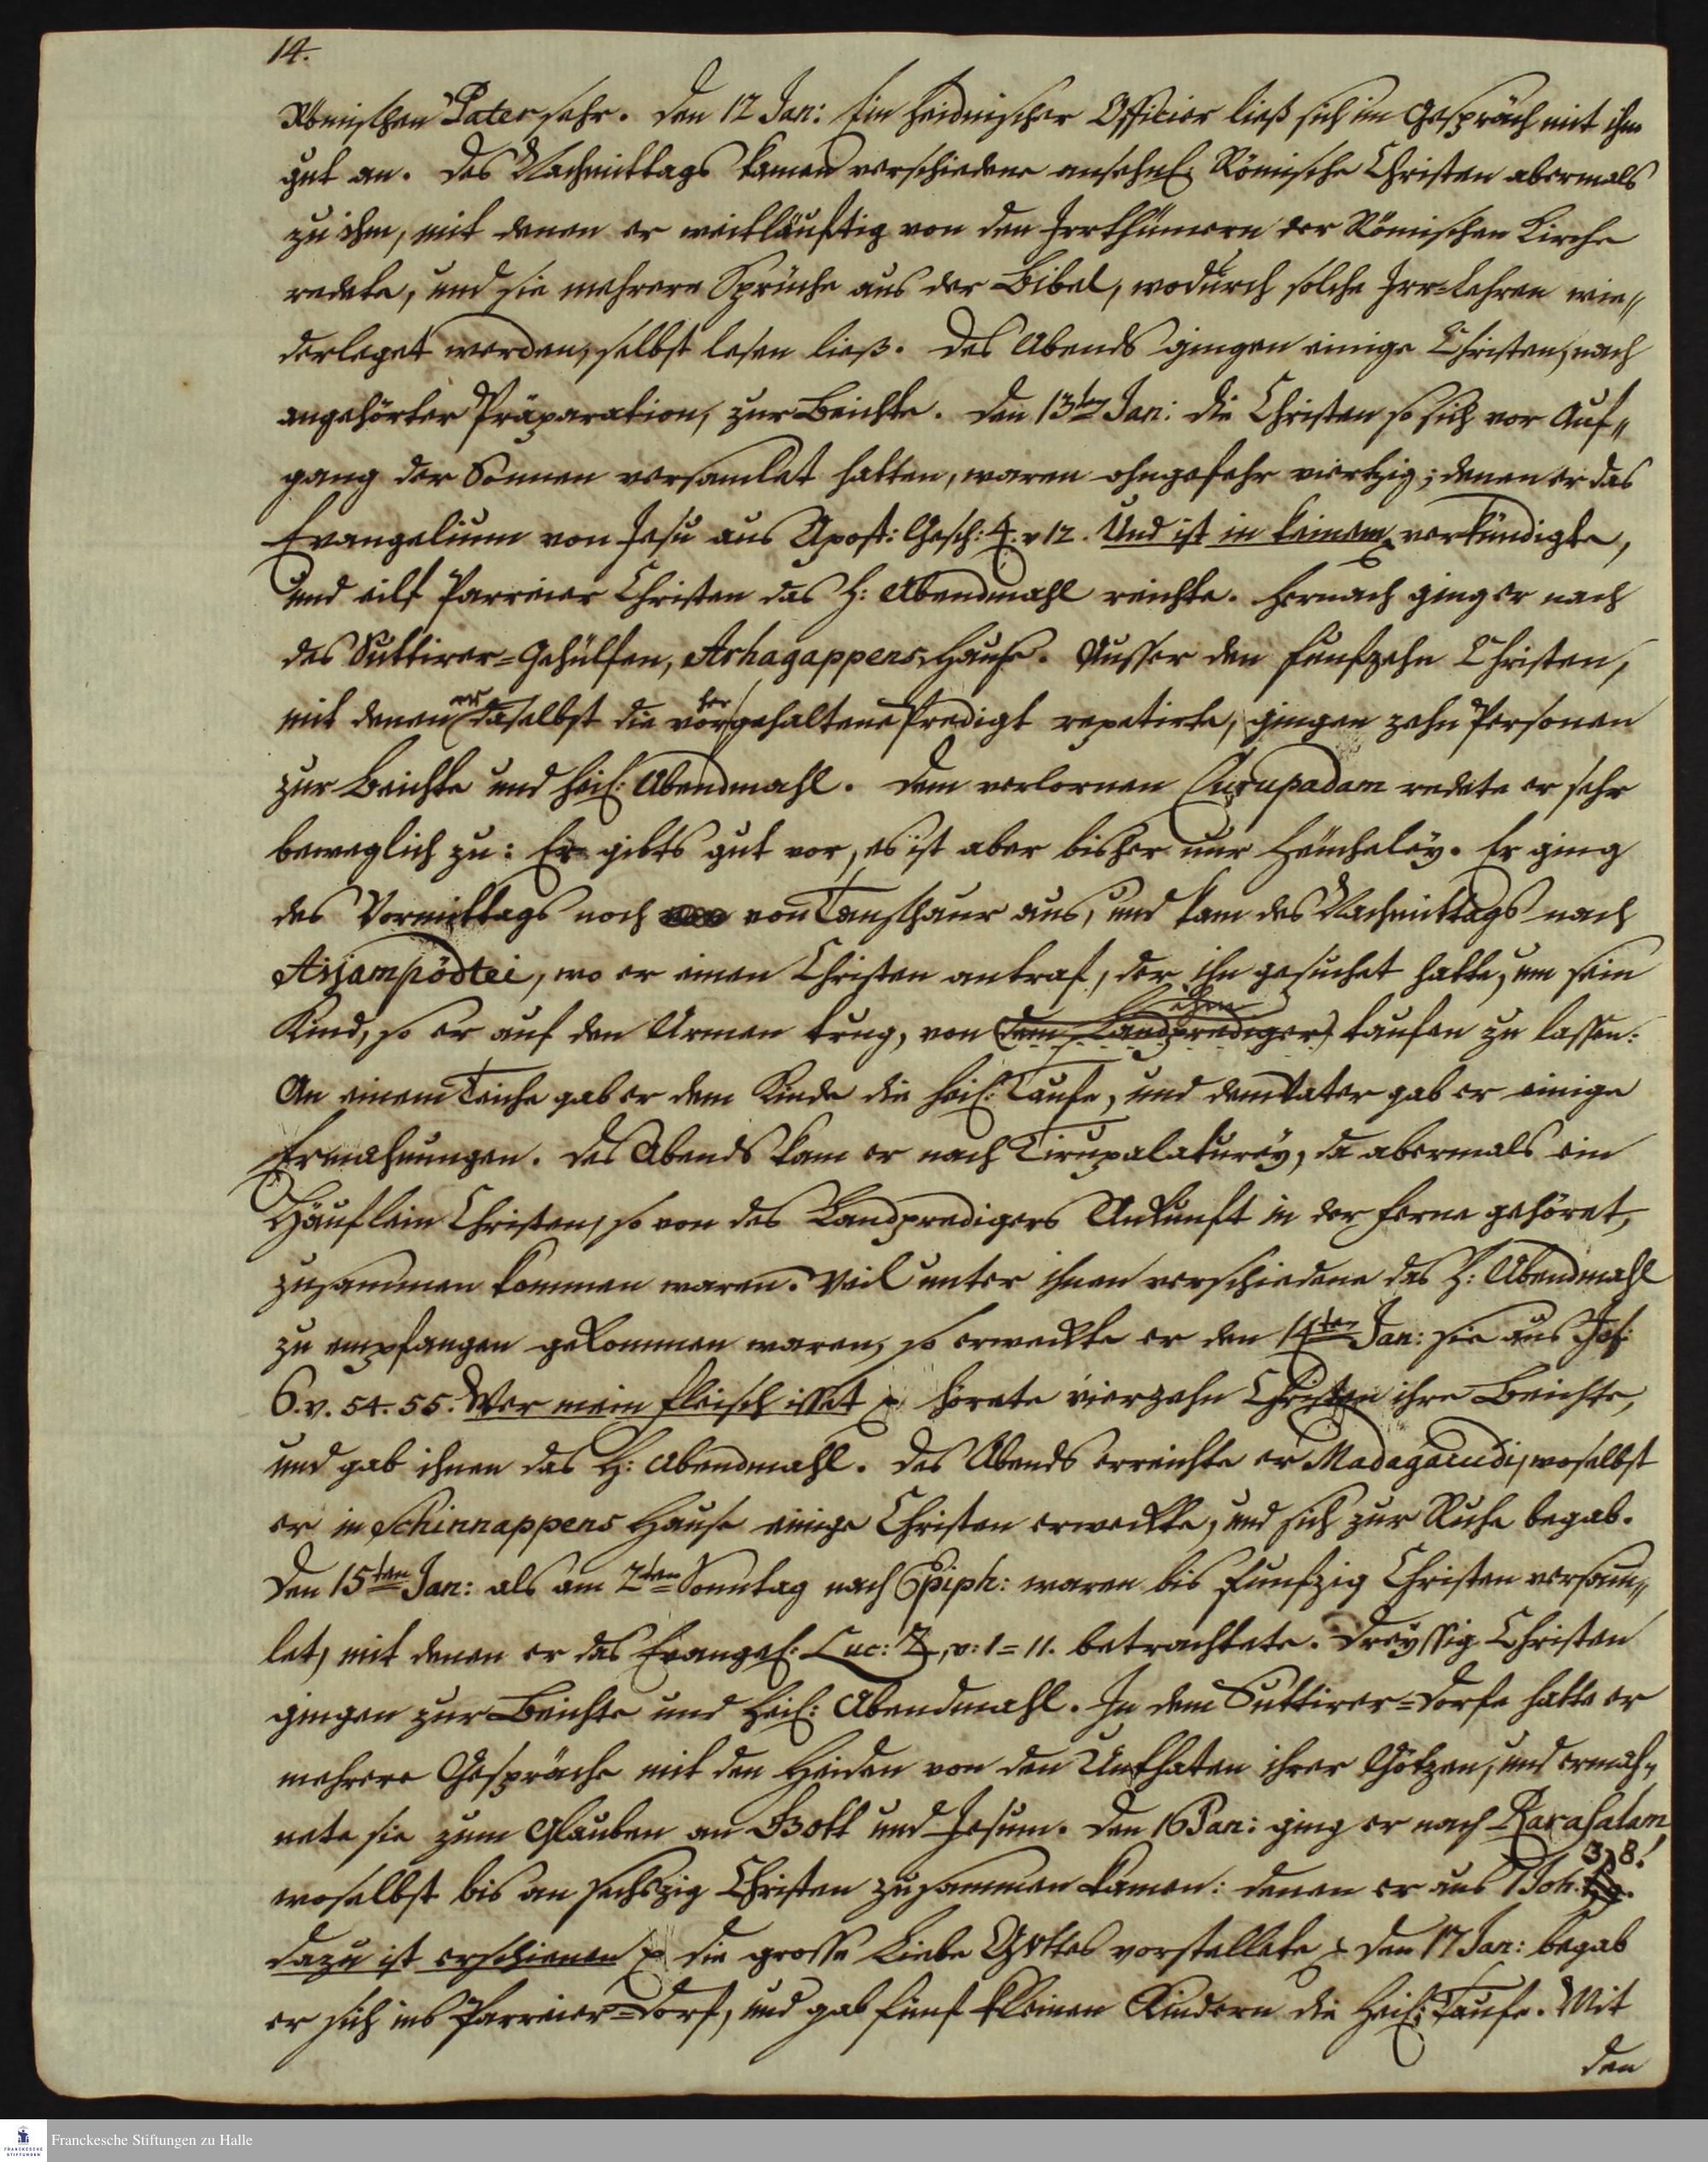 14.
Römischen Pater sehr. Den 12 Jan: Ein heidnischer Officier ließ sich im Gespräch mit ihm
gut an. Des Nachmittags kamen verschiedene ansehnl. Römische Christen abermals
zu ihm, mit denen er weitläuftig von den Irrthümern der Römischen Kirche
redete, und sie mehrere Sprüche aus der Bibel, wodurch solche Irr=Lehren wie„
derleget werden, selbst lesen ließ. Des Abends gingen einige Christen, nach
angehörter Präparation, zur Beichte. Den 13ten Jan: Die Christen so sich vor Auf„
gang der Sonnen versamlet hatten, waren ohngefehr viertzig; denen er das
Evangelium von Jesu aus Apost: Gesch: 4. v 12. Und ist in keinem verkündigte,
und eilf Parreier Christen das H: Abendmahl reichte. Hernach ging er nach
des Suttirer=Gehülfen, Arhagappens Hause. Ausser den funfzehn Christen,
mit denen er daselbst die vorher gehaltene Predigt repetirte, gingen zehn Personen
zur Beichte und heil: Abendmahl. Dem verlornen Curupadam redete er sehr
beweglich zu: Er gibts gut vor, es ist aber bisher nur Heucheley. Er ging
des Vormittags noch von Tanschaur aus, und kam des Nachmittags nach
Aijampödtei, wo er einen Christen antraf, der ihn gesuchet hatte, um sein
Kind, so er auf den Armen trug, von (dem Landprediger) ihm taufen zu lassen.
An einem Teiche gab er dem Kinde die heil: Taufe, und dem Vater gab er einige
Ermahnungen. Des Abends kam er nach Tirupalaturey, da abermals ein
Häuflein Christen, so von des Landpredigers Ankunft in der Ferne gehöret,
zusammen kommen waren. Weil unter ihnen verschiedene das H: Abendmahl
zu empfangen gekommen waren, so erweckte er den 14ten Jan: sie aus Joh:
6. v. 54. 55. Wer mein Fleisch isset hörete vierzehn Christen ihre Beichte,
und gab ihnen das H: Abendmahl. Des Abends erreichte er Madagacudi, woselbst
er in Schinnappens Hause einige Christen erweckte, und sich zur Ruhe begab.
Den 15ten Jan: als am 2ten Sonntag nach Epiph: waren bis funfzig Christen versam„
let, mit denen er das Evangel. Luc: 2, v: 1=11. betrachtete. Dreyssig Christen
gingen zur Beichte und heil: Abendmahl. In dem Suttirer=Dorfe hatte er
mehrere Gespräche mit den Heiden von den Unthaten ihrer Götzen, und ermah„
nete sie zum Glauben an Gott und Jesum. Den 16 Jan: ging er nach Rarasalam
woselbst bis an sechszig Christen zusammen kamen: denen er aus 1 Joh. 3, 8.
dazu ist erschienen die grosse Liebe Gottes vorstellete. Den 17 Jan: begab
er sich ins Parreier=Dorf, und gab fünf kleinen Kindern die heil: Taufe. Mit
den
Franckesche Stiftungen zu Halle